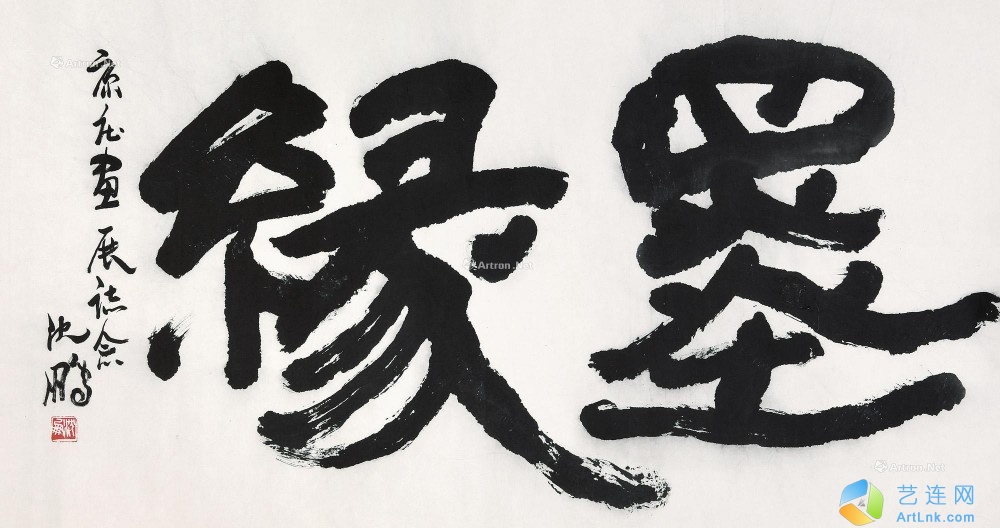 墨缘
康庄画展志念
沈鹏
Artron.Net
Artron.Net
Artron.Net
艺连网
ArtLnk.com